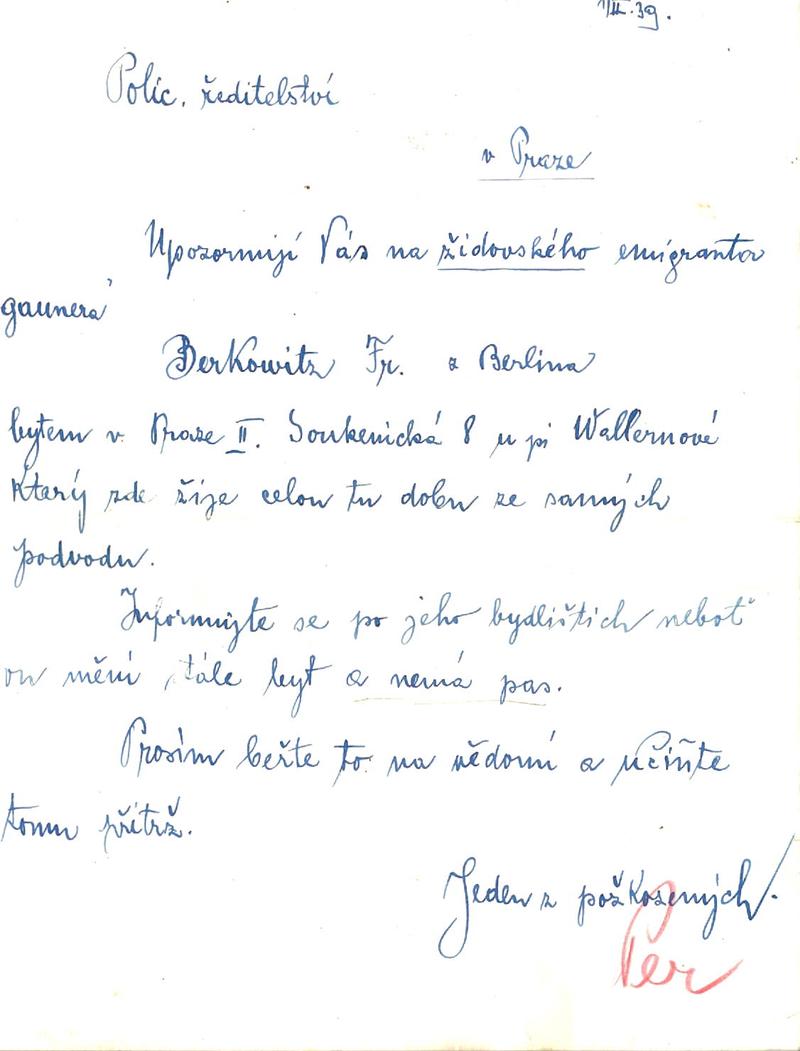 1/II.39.
Polic. ředitelství
v Praze
Upozorňuji Vás na židovského emigranta
gaunera
Berkowitz Fr. z Berlina
bytem v Praze II. Soukenická 8 u pí Wallernové
Který zde žije celou tu dobu ze samých
podvodu.
Informujte se po jeho bydlištích neboť
on mění stále byt a nemá pas.
Prosím beřte to na vědomí a učiňte
tomu přítrž.
Jeden z poškozených.
Per